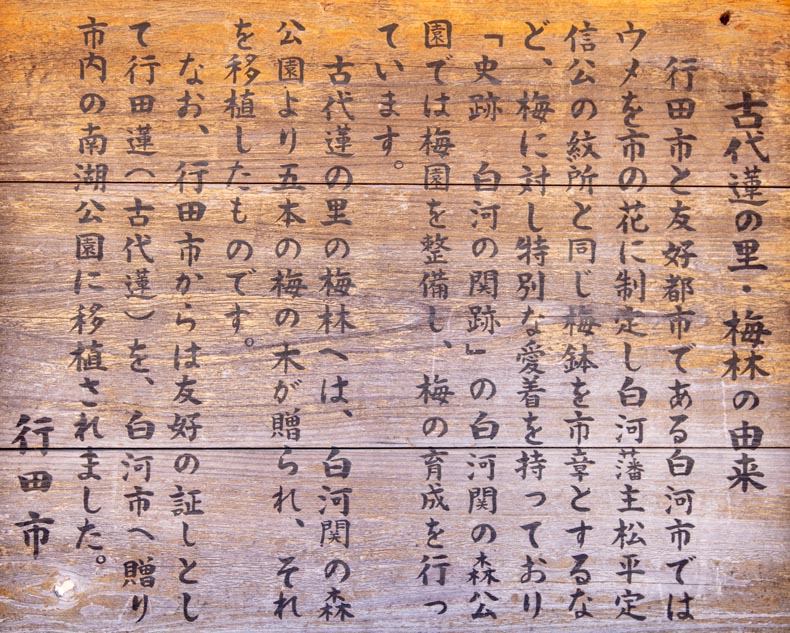 古代蓮の里・梅林の由来
行田市と友好都市である白河市では
ウメを市の花に制定し白河藩主松平定
信公の紋所と同じ梅鉢を市章とするな
ど、梅に対し特別な愛着を持っており
「史跡 白河の関跡」の白河関の森公
園では梅園を整備し、梅の育成を行っ
ています。
古代蓮の里の梅林へは、白河関の森
公園より五本の梅の木が贈られ、それ
を移植したものです。
なお、行田市からは友好の証しとし
て行田蓮(古代蓮)を、白河市へ贈り
市内の南湖公園に移植されました。
行田市